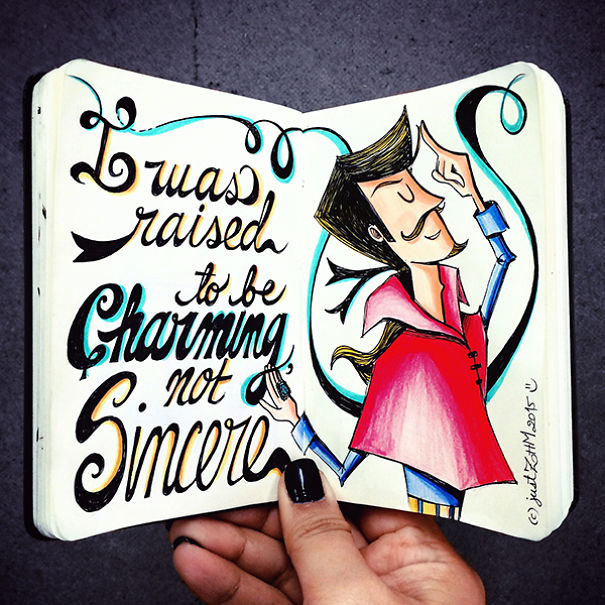 I was
raised
to be
Charming,
not
Sincere
(c) justZHM 2015